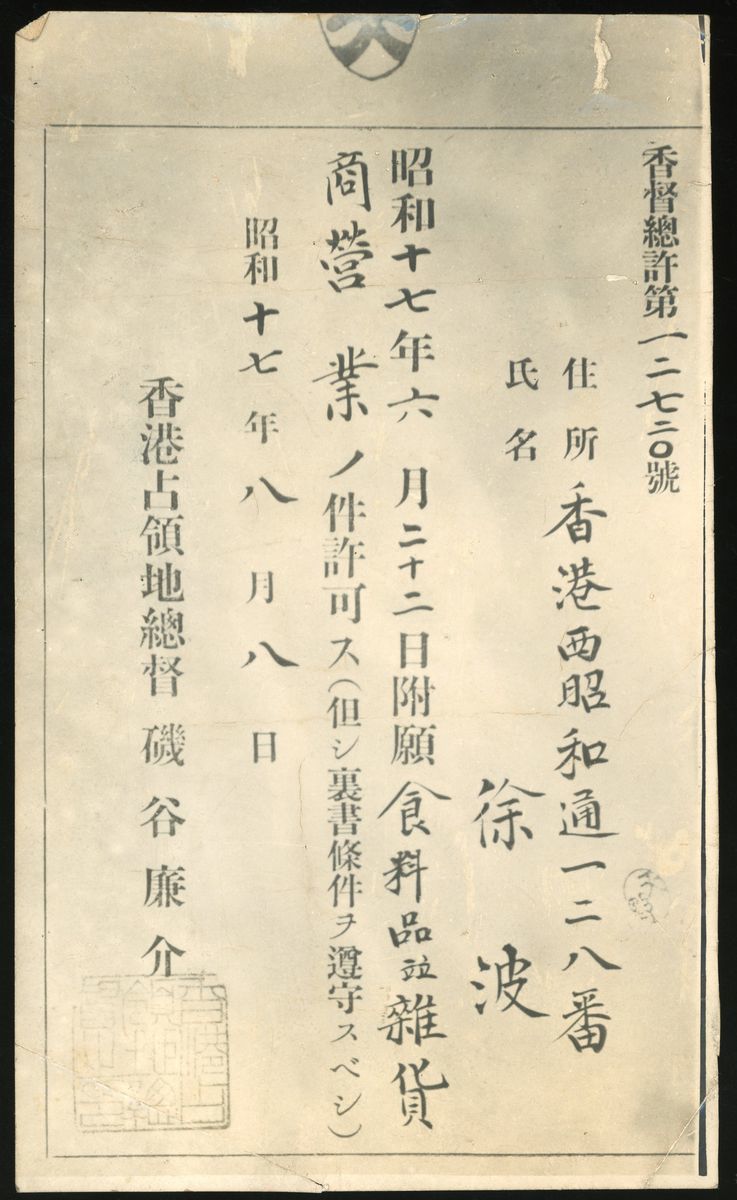 香督總許第一二七二〇號
住所 香港西昭和通一二八番
氏名 徐波
昭和十七年六月二十二日附願食料品竝雜貨
商營業ノ件許可ス（但シ裏書條件ヲ遵守スベシ）
昭和十七年八月八日
香港占領地總督 磯谷廉介